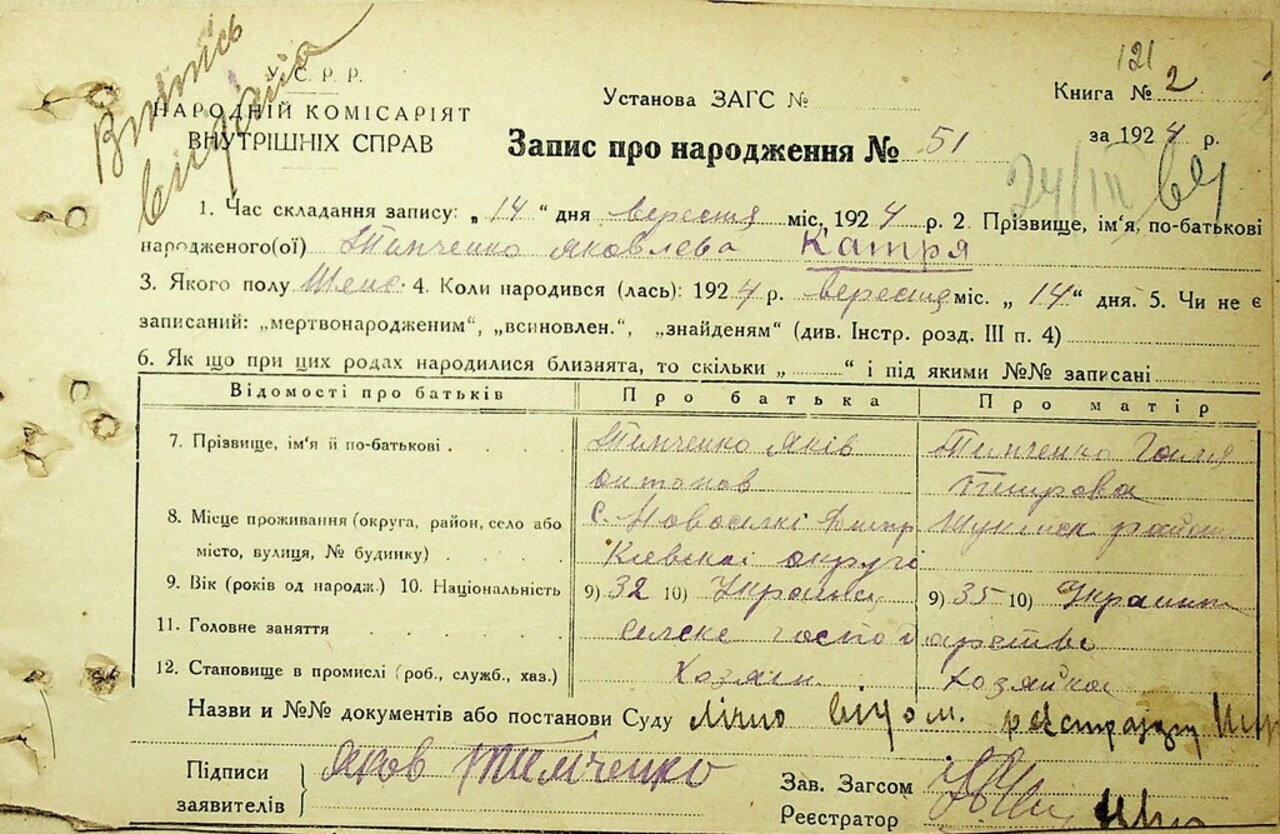 Випись
видана
У. С. Р. Р.
НАРОДНІЙ КОМІСАРІЯТ
ВНУТРІШНІХ СПРАВ
Установа ЗАГС №
121
Книга № 2
Запис про народження № 51
за 1924 р.
24/III
1. Час складання запису: „ 14 “ дня вересня міс. 1924 р. 2. Прізвище, ім'я, по-батькові
народженого(ої) Тимченко Яковлева Катря
3. Якого полу Женс. 4. Коли народився (лась): 1924 р. вересня міс. „ 14 “ дня. 5. Чи не є
записаний: „мертвонародженим“, „всиновлен.“, „знайденям“ (див. Інстр. розд. III п. 4)
6. Як що при цих родах народилися близнята, то скільки „ “ і під якими №№ записані
Відомості про батьків Про батька Про матір
7. Прізвище, ім'я й по-батькові Тимченко Яків Тимченко
антонов
8. Місце проживання (округа, район, село або с. Новосілкі район
місто, вулиця, № будинку) Кіевскаі округі
9. Вік (років од народж.) 10. Національність 9) 32 10) 9) 35 10)
11. Головне заняття селске господарство
12. Становище в промислі (роб., служб., хаз.) Хозяин Хозяйка
Назви и №№ документів або постанови Суду лічно відом.
Підписи
заявителів
Яков Тимченко
Зав. Загсом
Реєстратор